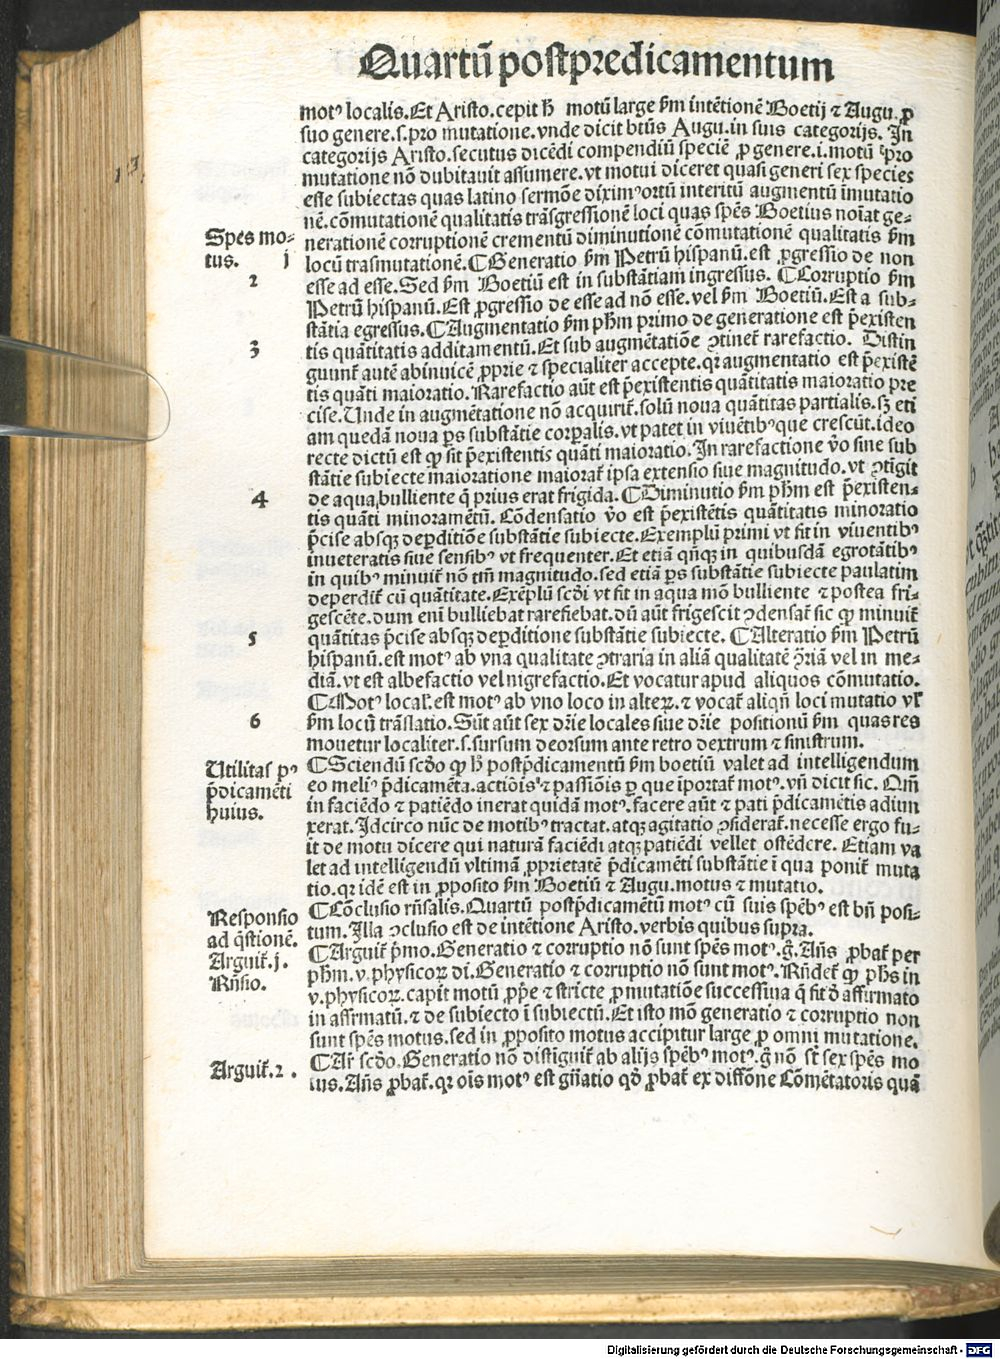 Quartū postpredicamentum
motꝰ localis. Et Aristo. cepit ħ motū large ẜm intētionē Boetij ⁊ Augu. ꝓ
suo genere. s. pro mutatione. vnde dicit btūs Augu. in suis categorijs. In
categorijs Aristo. secutus dicēdi compendiū speciē ꝓ genere. i. motū pro
mutatione nō dubitauit assumere. vt motui diceret quasi generi sex species
esse subiectas quas latino sermōe diximꝰ ortū interitū augmentū īmutatio
nē. cōmutationē qualitatis trāsgressionē loci quas spēs Boetius noīat ge⸗
nerationē corruptionē crementū diminutionē cōmutationē qualitatis ẜm
locū trasmutationē. ¶ Generatio ẜm Petrū hispanū. est ꝓgressio de non
esse ad esse. Sed ẜm Boetiū est in substātiam ingressus. ¶ Corruptio ẜm
Petrū hispanū. Est ꝓgressio de esse ad nō esse. vel ẜm Boetiū. Est a sub⸗
stātia egressus. ¶ Augmentatio ẜm pħm primo de generatione est p̄existen
tis quātitatis additamentū. Et sub augmētatiōe ꝯtinet̄ rarefactio. Distin
guunt̄ autē abinuicē ꝓprie ⁊ specialiter accepte. qꝛ augmentatio est p̄existē
tis quāti maioratio. Rarefactio aūt est p̄existentis quātitatis maioratio pre
cise. Unde in augmētatione nō acquirit̄. solū noua quātitas partialis. sꝫ eti
am quedā noua ꝑs substātie corꝑalis. vt patet in viuētibꝰ que crescūt. ideo
recte dictū est ꝙ sit p̄existentis quāti maioratio. In rarefactione v̄o sine sub
stātie subiecte maioratione maiorat̄ ipsa extensio siue magnitudo. vt ꝯtigit
de aqua bulliente q̄ prius erat frigida. ¶ Diminutio ẜm pħm est p̄existen⸗
tis quāti minoramētū. Cōdensatio v̄o est p̄existētis quātitatis minoratio
p̄cise absqꝫ deperditiōe substātie subiecte. Exemplū primi vt fit in viuentibꝰ
inueteratis siue senibꝰ vt frequenter. Et etiā qn̄qꝫ in quibusdā egrotātibꝰ
in quibꝰ minuit̄ nō tm̄ magnitudo. sed etiā ꝑs substātie subiecte paulatim
deperdit̄ cū quātitate. Exēplū scđi vt fit in aqua mō bulliente ⁊ postea fri⸗
gescēte. dum eni bulliebat rarefiebat. dū aūt frigescit ꝯdensat̄ sic ꝙ minuit̄
quātitas p̄cise absqꝫ deꝑditione substātie subiecte. ¶ Alteratio ẜm Petrū
hispanū. est motꝰ ab vna qualitate ꝯtraria in aliā qualitatē ꝯ̄riā vel in me⸗
diā. vt est albefactio vel nigrefactio. Et vocatur apud aliquos cōmutatio.
¶ Motꝰ local̄. est motꝰ ab vno loco in alteꝝ. ⁊ vocat̄ aliqn̄ loci mutatio vł
ẜm locū trāslatio. Sūt aūt sex dr̄ie locales siue dr̄ie positionū ẜm quas res
mouetur localiter. s. sursum deorsum ante retro dextrum ⁊ sinistrum.
¶ Sciendū scđo ꝙ ħ postp̄dicamentū ẜm boetiū valet ad intelligendum
eo meliꝰ p̄dicamēta. actiōis ⁊ passiōis ꝑ que īportat̄ motꝰ. vn̄ dicit sic. Om̄
in faciēdo ⁊ patiēdo inerat quidā motꝰ. facere aūt ⁊ pati p̄dicamētis adiun
xerat. Idcirco nūc de motibꝰ tractat. atqꝫ agitatio ꝯsiderat̄. necesse ergo fu⸗
it de motu dicere qui naturā faciēdi atqꝫ patiēdi vellet ostēdere. Etiam va
let ad intelligendū vltimā ꝓprietatē p̄dicamēti substātie ī qua ponit̄ muta
tio. qꝛ idē est in ꝓposito ẜm Boetiū ⁊ Augu. motus ⁊ mutatio.
¶ Cōclusio rn̄salis. Quartū postp̄dicamētū motꝰ cū suis spēbꝰ est bn̄ posi⸗
tum. Illa ꝯclusio est de intētione Aristo. verbis quibus supra.
¶ Arguit̄ p̄mo. Generatio ⁊ corruptio nō sunt spēs motꝰ. g̊. Ans̄ ꝓbat̄ per
pħm. v. physicoꝝ di. Generatio ⁊ corruptio nō sunt motꝰ. Rn̄det̄ ꝙ pħs in
v. physicoꝝ. capit motū ꝓpe ⁊ stricte ꝓ mutatiōe successiua q̄ fit đ affirmato
in affirmatū. ⁊ de subiecto ī subiectū. Et isto mō generatio ⁊ corruptio non
sunt spēs motus. sed in ꝓposito motus accipitur large ꝓ omni mutatione.
¶ Ar̄ scđo. Generatio nō distiguit̄ ab alijs spēbꝰ motꝰ. g̊ nō st̄ sex spēs mo
tus. Ans̄ ꝓbat̄. qꝛ oīs motꝰ est gn̄atio qđ ꝓbat̄ ex diffōne Cōmētatoris quā
Spēs mo⸗
tus. j
2
3
4
5
6
Utilitas pꝰ
p̄dicamēti
huius.
Responsio
ad q̄stionē.
Arguit̄. j.
Rn̄sio.
Arguit̄. 2.
Digitalisierung gefördert durch die Deutsche Forschungsgemeinschaft - DFG